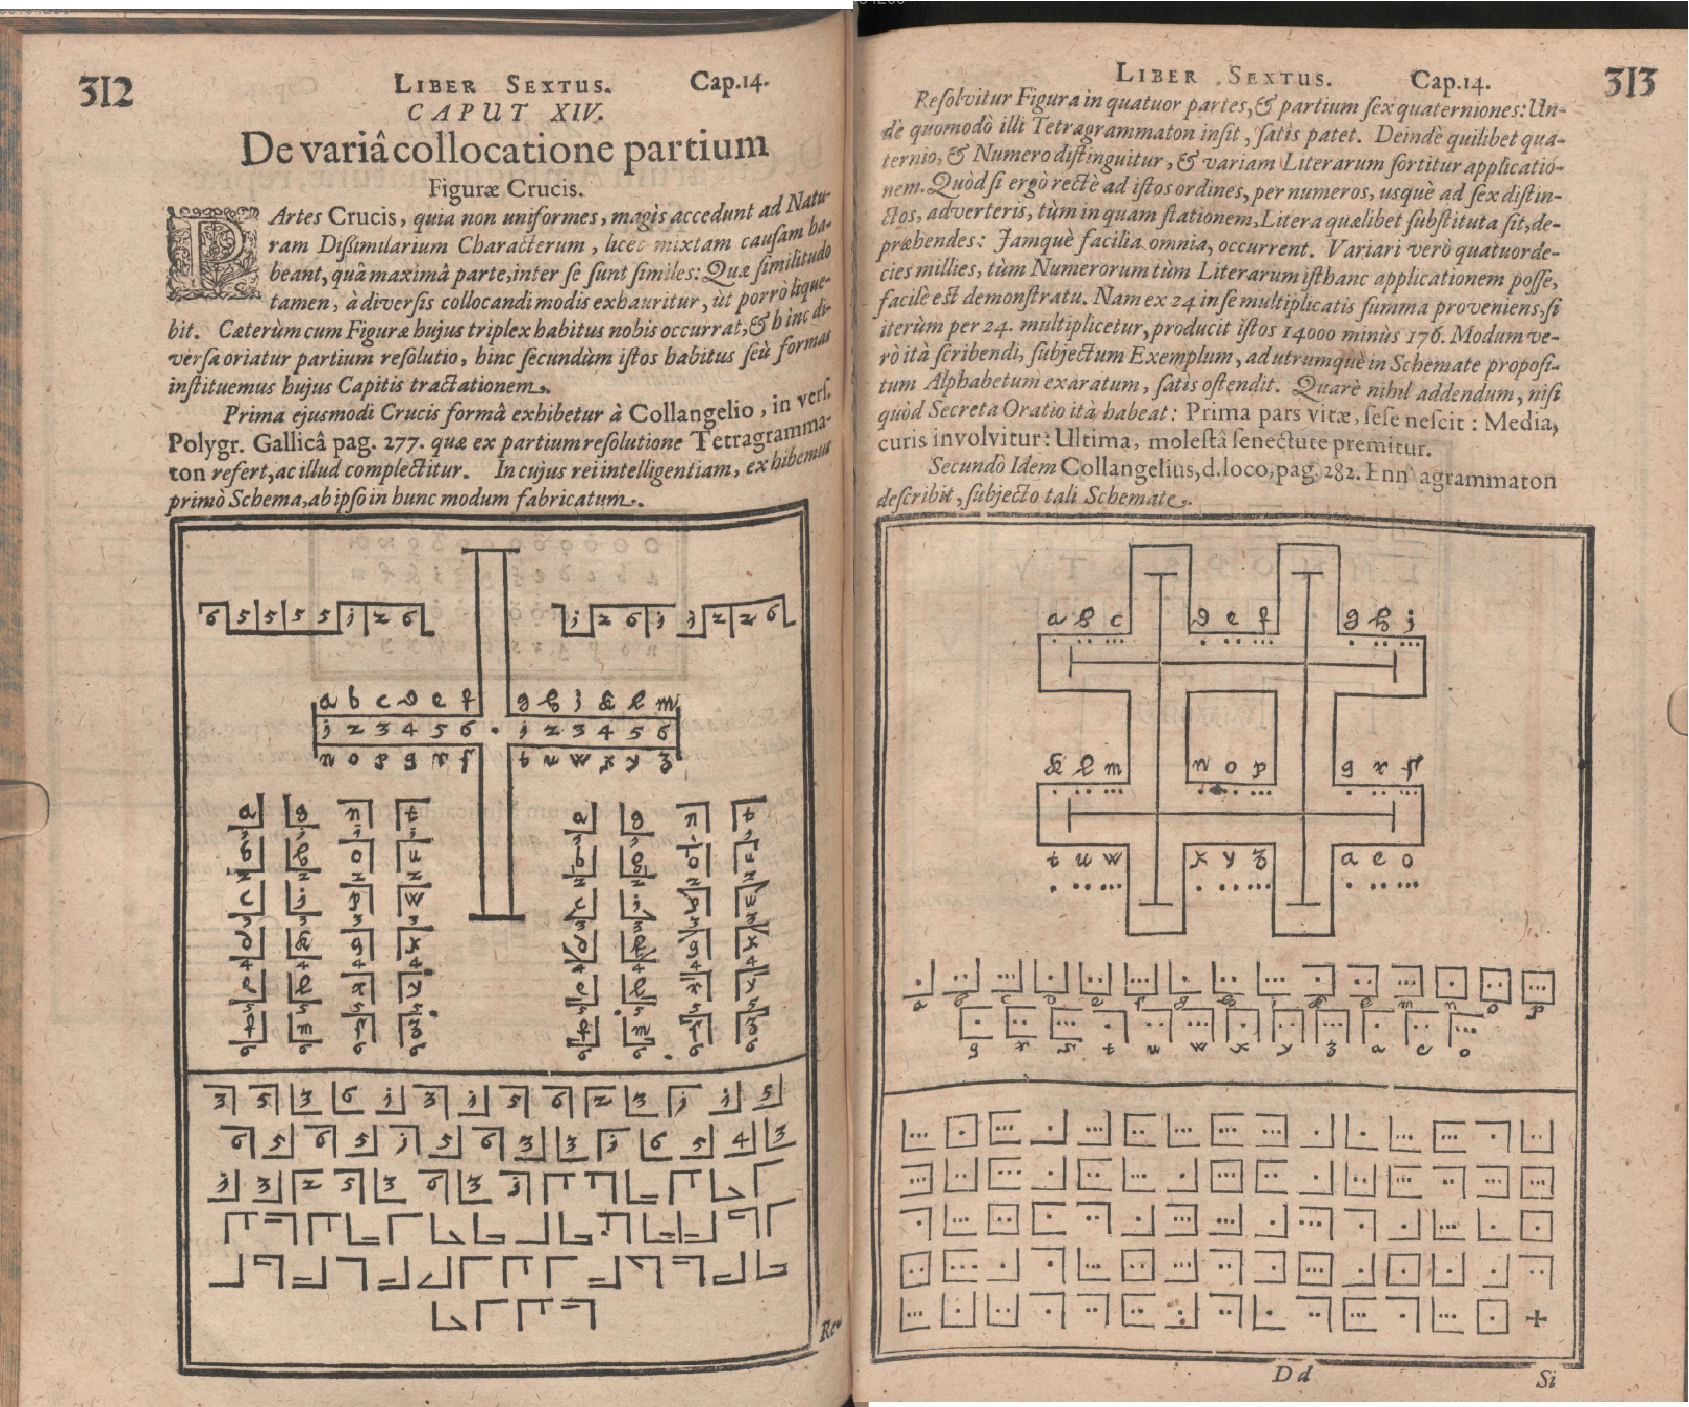 312 LIBER SEXTUS. Cap.14.
CAPUT XIV.
De variâ collocatione partium
Figuræ Crucis.
PArtes Crucis, quia non uniformes, magis accedunt ad Natu-
ram Dißimilarium Characterum, licet mixtam causam ha-
beant, quâ maximâ parte, inter se sunt similes: Quæ similitudo
tamen, à diversis collocandi modis exhauritur, ùt porrò lique-
bit. Cæterùm cum Figuræ hujus triplex habitus nobis occurrat, & hinc di-
versa oriatur partium resolutio, hinc secundùm istos habitus seù formas
instituemus hujus Capitis tractationem.
Prima ejusmodi Crucis forma exhibetur à Collangelio, in vers.
Polygr. Gallicâ pag. 277. quæ ex partium resolutione Tetragramma-
ton refert, ac illud complectitur. In cujus rei intelligentiam, exhibemus
primò Schema, ab ipso in hunc modum fabricatum.
6 5 5 5 5 j 2 6 j 2 6 j j 2 2 6
a b c d e f g h j k l m
j 2 3 4 5 6 . j 2 3 4 5 6
n o p q r s t u w x y z
3 5 3 6 j 3 j 5 6 2 3 j j 5
6 5 6 5 j 5 6 3 3 j 6 5 4 3
j 3 2 5 3 6 3 j
313 LIBER SEXTUS. Cap.14.
Resolvitur Figura in quatuor partes, & partium sex quaterniones: Un-
dè quomodò illi Tetragrammaton insit, satis patet. Deindè quilibet qua-
ternio, & Numero distinguitur, & variam Literarum sortitur applicatio-
nem. Quòd si ergò rectè ad istos ordines, per numeros, usquè ad sex distin-
ctos, adverteris, tùm in quam stationem, Litera quælibet substituta sit, de-
præhendes: Jamquè facilia omnia, occurrent. Variari verò quatuorde-
cies millies, tùm Numerorum tùm Literarum isthanc applicationem posse,
facilè est demonstratu. Nam ex 24 in se multiplicatis summa proveniens, si
iterùm per 24. multiplicetur, producit istos 14000 minùs 176. Modum ve-
rò ità scribendi, subjectum Exemplum, ad utrumquè in Schemate proposi-
tum Alphabetum exaratum, satis ostendit. Quarè nihil addendum, nisi
quòd Secreta Oratio ità habeat: Prima pars vitæ, sese nescit: Media,
curis involvitur: Ultima, molestâ senectute premitur.
Secundò Idem Collangelius, d. loco, pag. 282. Enneagrammaton
describit, subjecto tali Schemate.
a b c d e f g h j
k l m n o p q r s
t u w x y z a e o
a b c d e f g h j k l m n o p
q r s t u w x y z a e o
D d Si